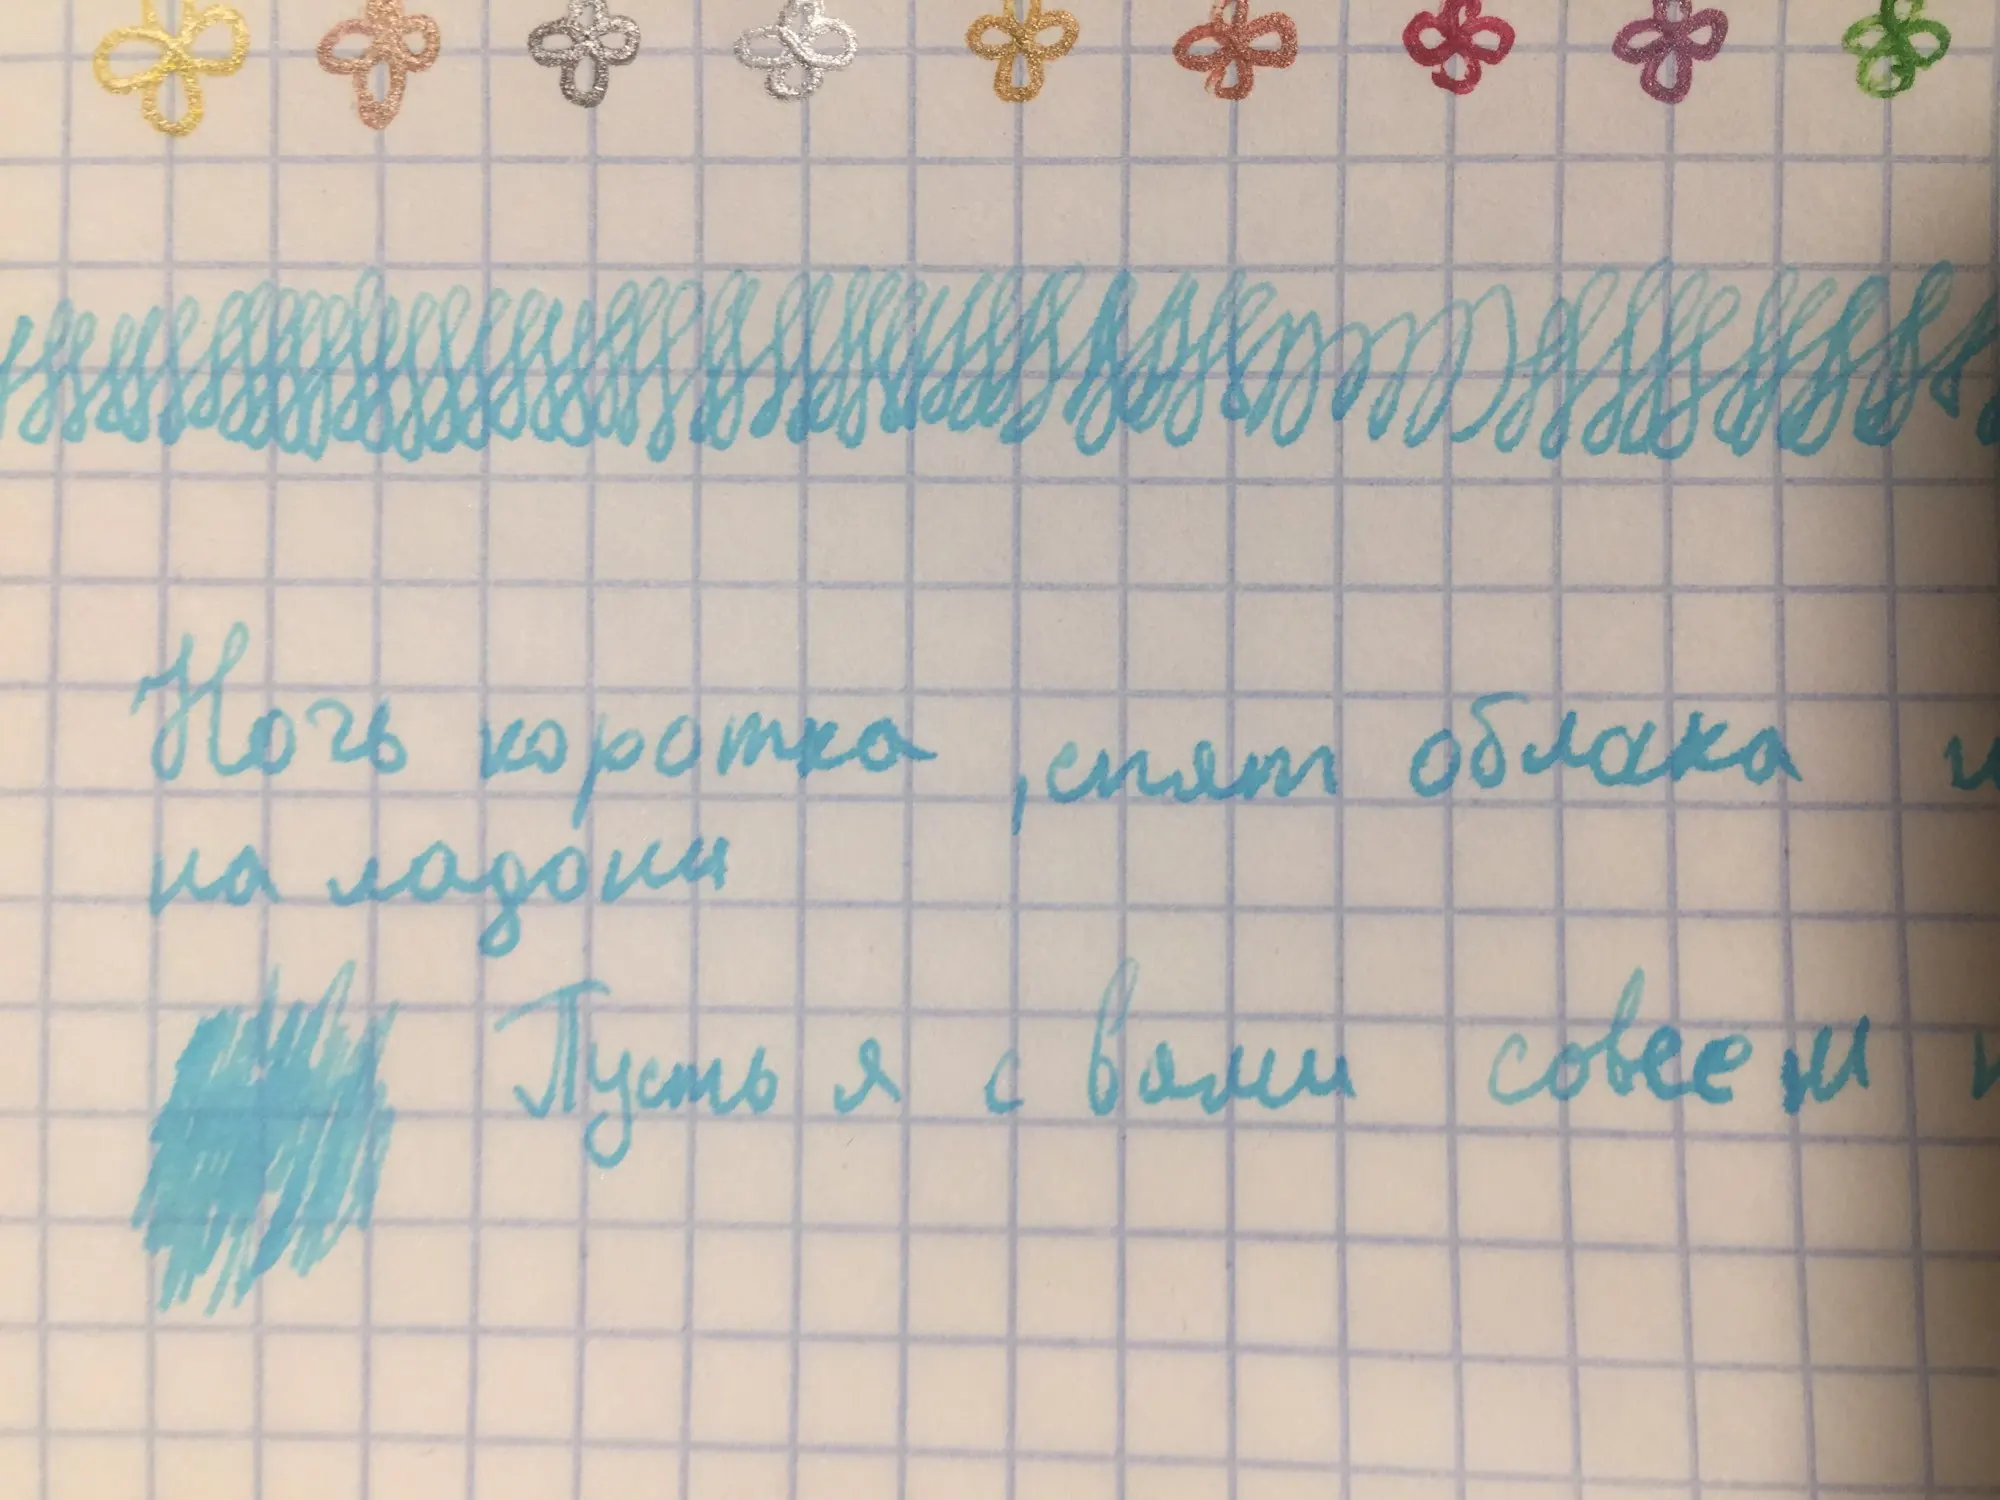 Ночь коротка ,спят облака
на ладони
Пусть я с вами совсем